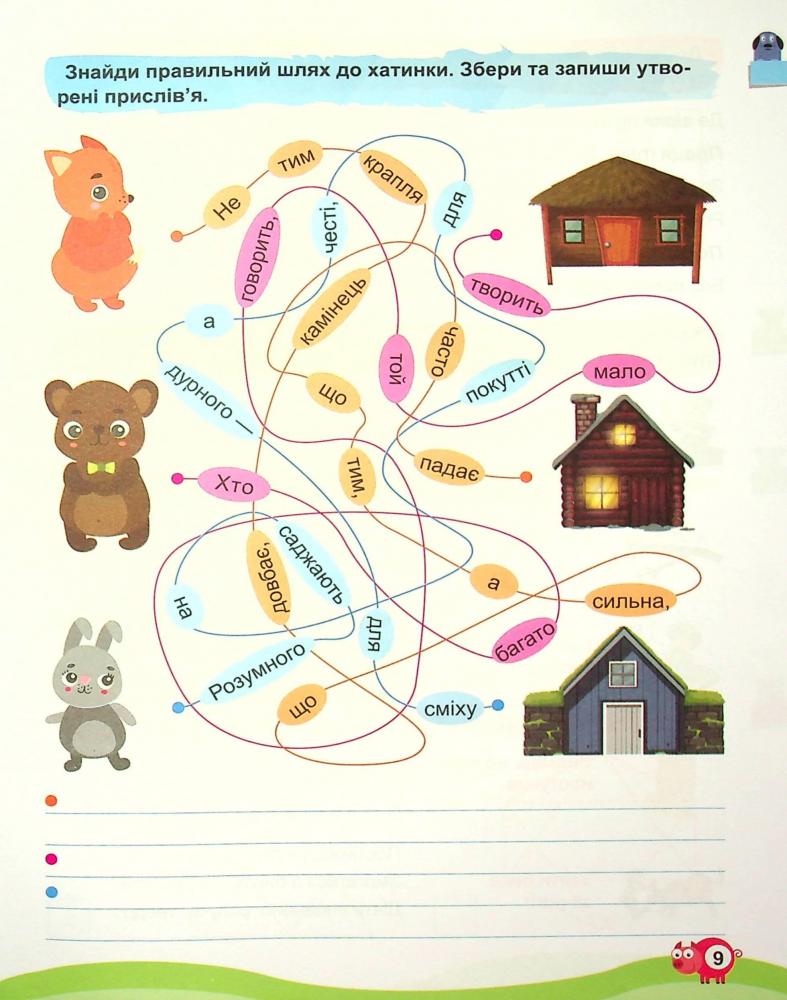 Знайди правильний шлях до хатинки. Збери та запиши утво-
рені прислів’я.
Не
тим
крапля
честі,
для
говорить,
творить
камінець
а
часто
той
що
дурного —
покутті
мало
тим,
падає
Хто
довбає,
саджають
на
а
сильна,
для
багато
Розумного
що
сміху
9